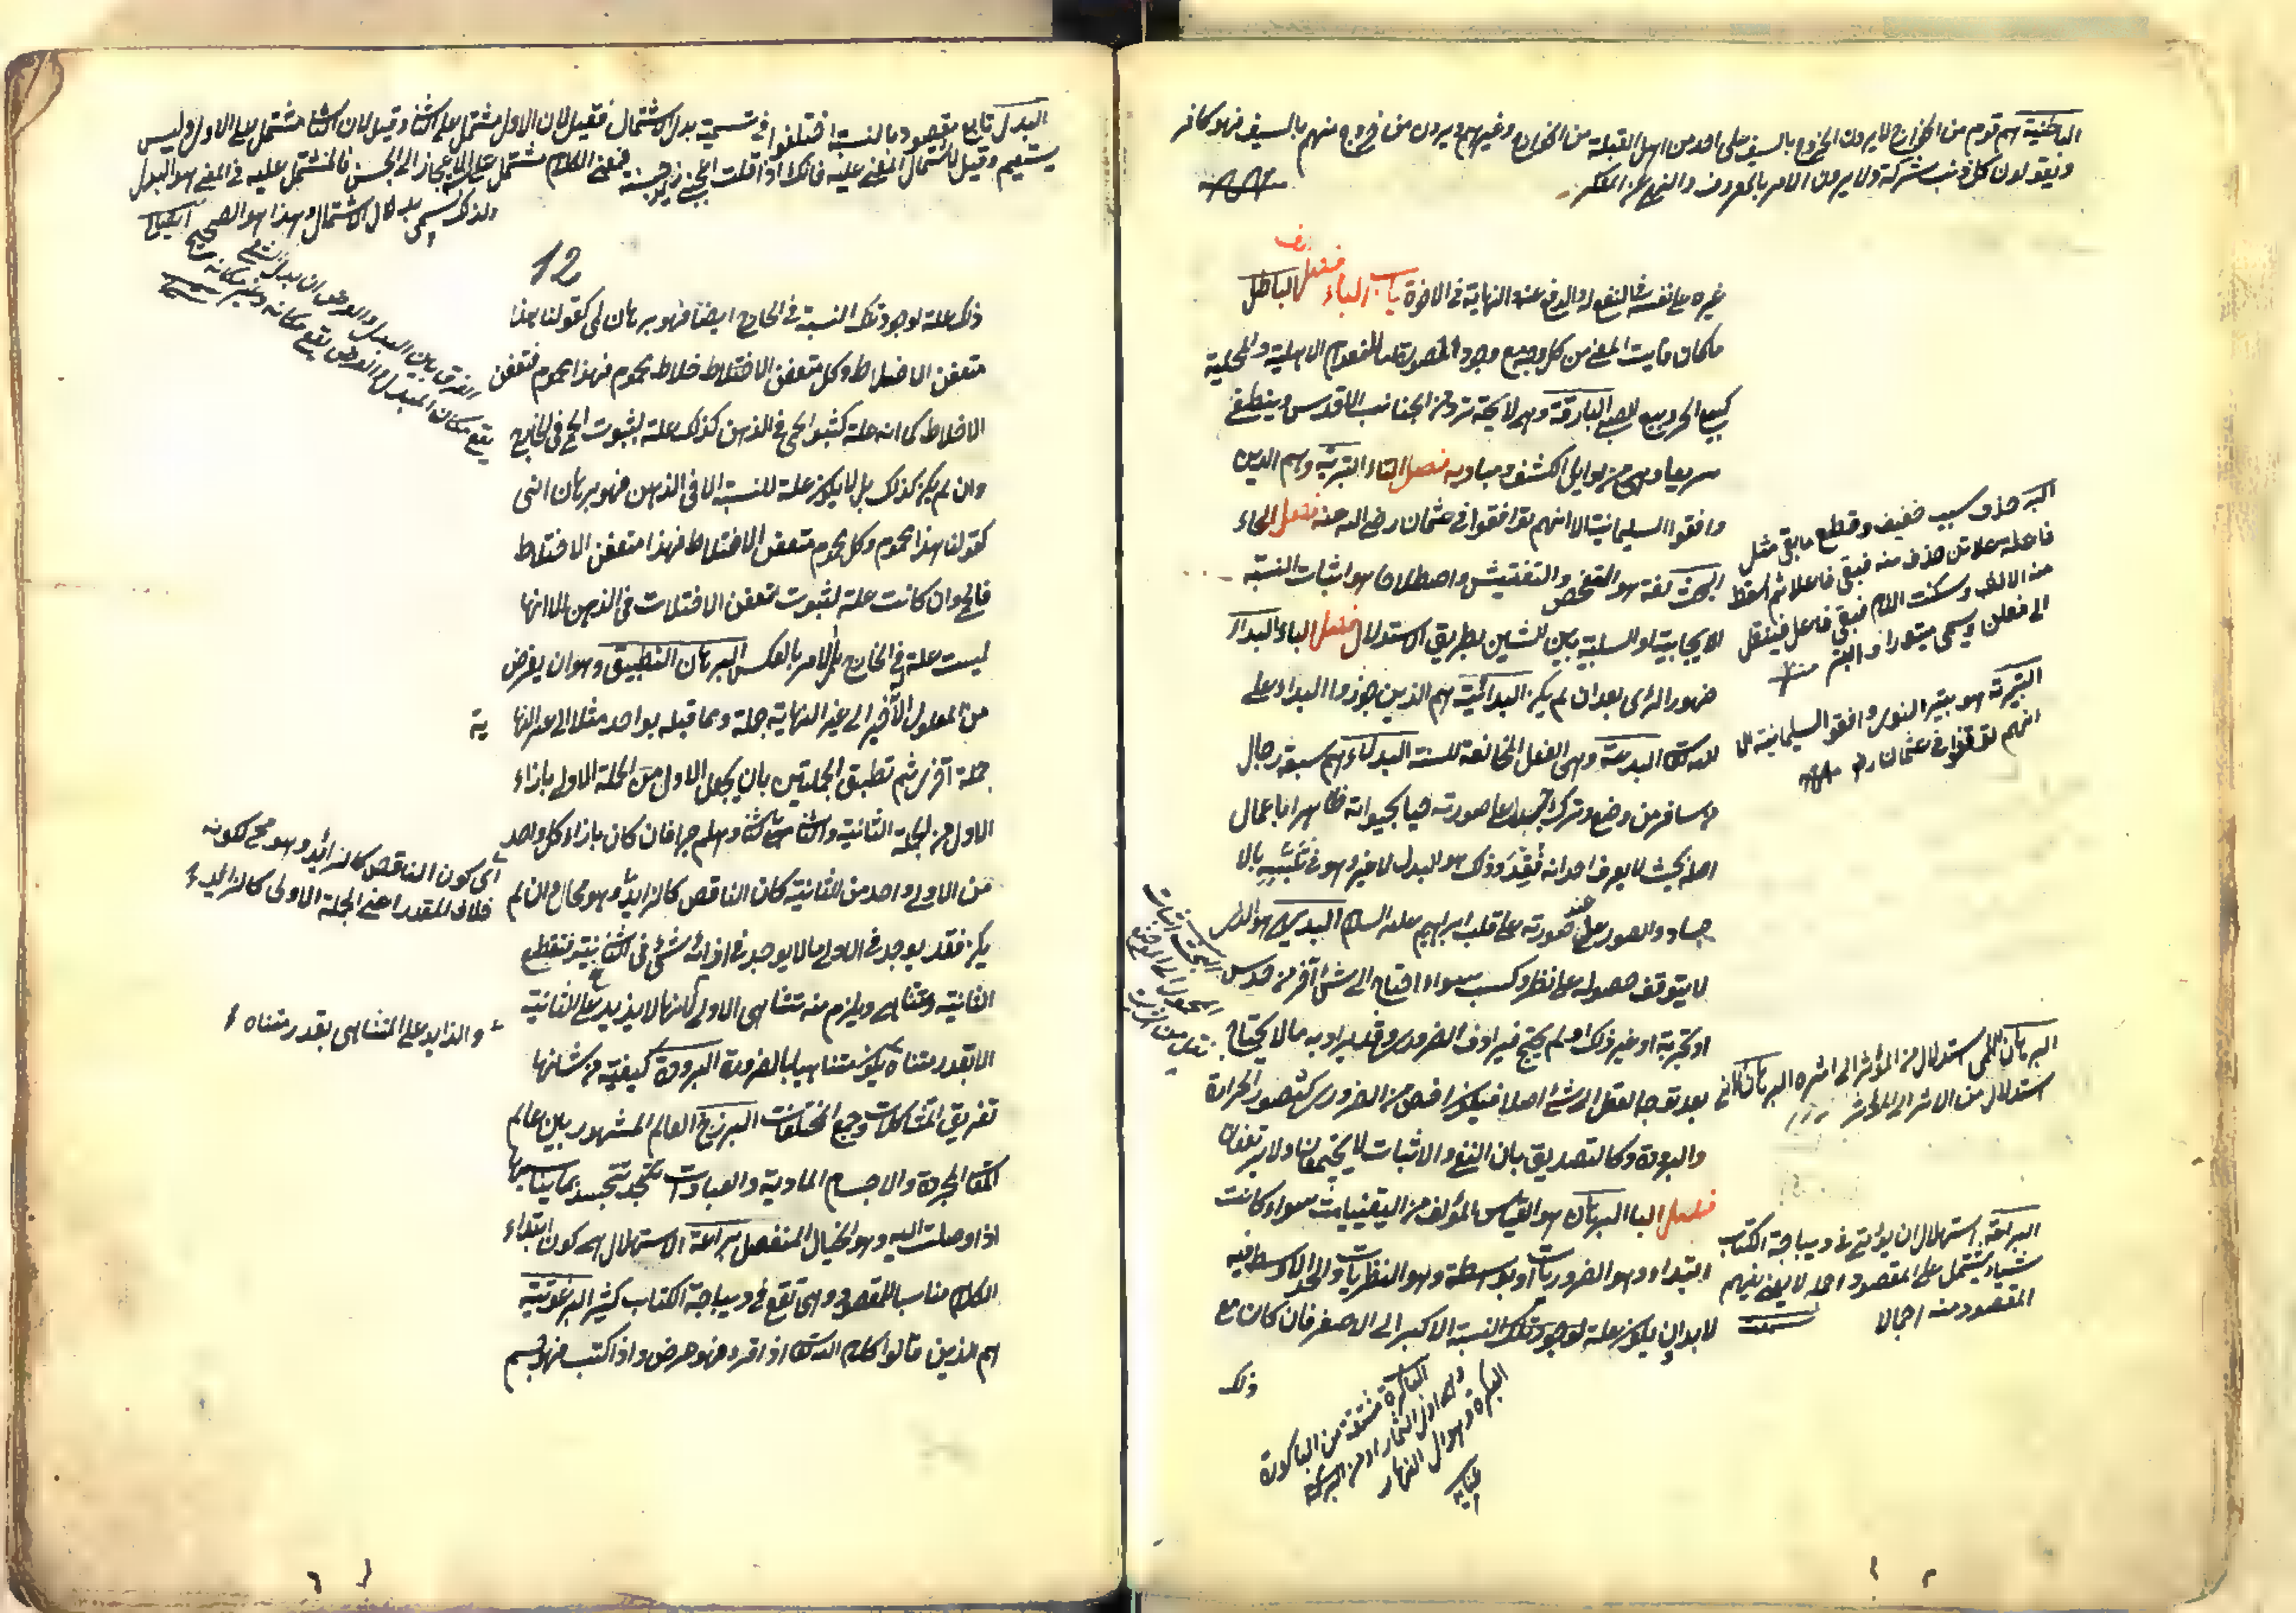 الباطنية هم قوم من الخوارج لا يرون الخروج بالسيف على احد من اهل القبلة من الخوارج وغيرهم ويرون من خروج منهم بالسيف فهو كافر
ويقولون كل ذنب شركة ولا يرون الامر بالمعروف والنهي عن المنكر
غيره على نفسه في النفع له والدفع عنه النهاية في الاخوة باب الباء فصل الباطل
ما كان فايت المعنى من كل وجه مع وجود الصورة اما لانعدام الاهلية والمحلية
كبيع الحر وبيع الصبي البارقة وهي لايحة ترد من الجناب الاقدس وينطفئ
سريعا وهي من اوايل الكشف ومباديه فصل التاء البترية وهم الذين
وافقوا السليمانية الا انهم توافقوا في عثمان رضي الله عنه فصل الحاء
البحث لغة هو التفحص والتفتيش واصطلاحا هو اثبات النسبة
الايجابية او السلبية بين الشين بطريق الاستدلال فصل الباء البداء
ظهور الرأى بعد ان لم يكن البدائية هم الذين جوزوا البداء على
الله تعالى البدعة وهي الفعل المخالفة للسنة البدلاء هم سبعة رجال
من سافر من وضع وترك جسدا على صورته حيا بحيوانه ظاهرا باعمال
اصله بحيث لا يعرف احد انه فقد وذلك هو البدل لا غير وهو في تشبيه بالا
جساد والصور على صورته على قلب ابراهيم عليه السلام البديهي هو الذي
لا يتوقف حصوله على نظر وكسب سواء احتاج الى شئ آخر من حدس
او تجربة او غير ذلك او لم يحتج فيرادف الضروري وقد يراد به ما لا يحتاج
بعد توجه العقل الى شئ اصلا فيكون اخص من الضروري كتصور الحرارة
والبرودة وكالتصديق بان النفي والاثبات لا يجتمعان ولا يرتفعان
فصل البا البرهان هو القياس المؤلف من اليقينيات سواء كانت
ابتداء وهو الضروريات او بواسطة وهو النظريات والحد الاوسط فيه
لابد ان يكون علة لوجود تلك النسبة الاكبر الى الاصغر فان كان مع
ذلك
البتر حذف سبب خفيف وقطع ما بقى مثل
فاعلاتن حذف منه فبقى فاعلا ثم اسقط
منه الالف وسكنت اللام فبقى فاعل فينقل
الى فعلن ويسمى مبتورا وابتر
البترية هو بتير النوى وافقو السليمانية الا
انهم توقفوا في عثمان رض
البرهان اللمي استدلال من المؤثر الى اثره البرهان الاني
استدلال من الاثر الى المؤثر
البراعة استهلال ان يؤتى في ديباجة الكتاب
شيئا يشتمل على المقصود اجمالا
المقصود منه اجمالا
الباكرة مشتقة من الباكورة
وهي اول الثمار او من البكرة
البكرة وهو اول النهار
البدل تابع مقصود بالنسبة اختلفوا في تسمية بدل الاشتمال فقيل لان الاول مشتمل على الثاني وقيل لان الثاني مشتمل على الاول وليس
يستقيم وقيل لاشتمال المعنى عليه فانك اذا قلت اعجبني زيد حسنه فمعنى الكلام مشتمل على الاعجاز الى الحسن فالمشتمل عليه في المعنى هو البدل
ولذلك سمى بدل الاشتمال وهذا هو الصحيح
12
الفرق بين البدل والعوض ان بدل الشئ
يقع مكان المبدل والعوض يقع مكانه وغير مكانه
ذلك علة لوجود تلك النسبة في الخارج ايضا فهو برهان لمى كقولنا هذا
متعفن الاخلاط وكل متعفن الاخلاط محموم فهذا محموم فتعفن
الاخلاط كما انه علة لثبوت الحمى في الذهن كذلك علة لثبوت الحمى في الخارج
وان لم يكن كذلك بل لا يكون علة للنسبة الا في الذهن فهو برهان انى
كقولنا هذا محموم وكل محموم متعفن الاخلاط فهذا متعفن الاخلاط
فالحمى وان كانت علة لثبوت تعفن الاخلاط في الذهن الا انها
ليست علة في الخارج بل الامر بالعكس البرهان التطبيق وهو ان يفرض
من المعلول الاخير الى غير النهاية جملة ومما قبله بواحد مثلا الى غير النهاية
جملة آخرى ثم تطبق الجملتين بان يجعل الاول من الجملة الاولى بازاء
الاول من الجملة الثانية والثاني بالثاني وهلم جرا فان كان بازاء كل واحد
من الاولى واحد من الثانية كان الناقص كالزايد وهو محال وان لم
يكن فقد يوجد في الاولى ما لا يوجد في ازائه شئ في الثانية فتنقطع
الثانية وتتناهى ويلزم منه تتناهى الاولى لانها لا يزيد على الثانية
الا بقدر متناه يكون متناهيا بالضرورة البرودة كيفية من شانها
تفريق المتشاكلات وجمع المختلفات البرزخ العالم المشهور بين عالم
المعاني المجردة والاجسام المادية والعبادات تتجسد بما يناسبها
اذا وصلت اليه وهو الخيال المنفصل براعة الاستهلال هي كون ابتداء
الكلام مناسبا للمقصود وهي تقع في ديباجة الكتاب كثيرا البرغوثية
هم الذين قالوا كلام الله تعالى اذا قرء فهو عرض واذا كتب فهو جسم
اى كون الناقص كالزائد وهو مح لكونه
خلاف المقدر اعنى الجملة الاولى كالزايد
والزايد على المتناهى بقدر متناه